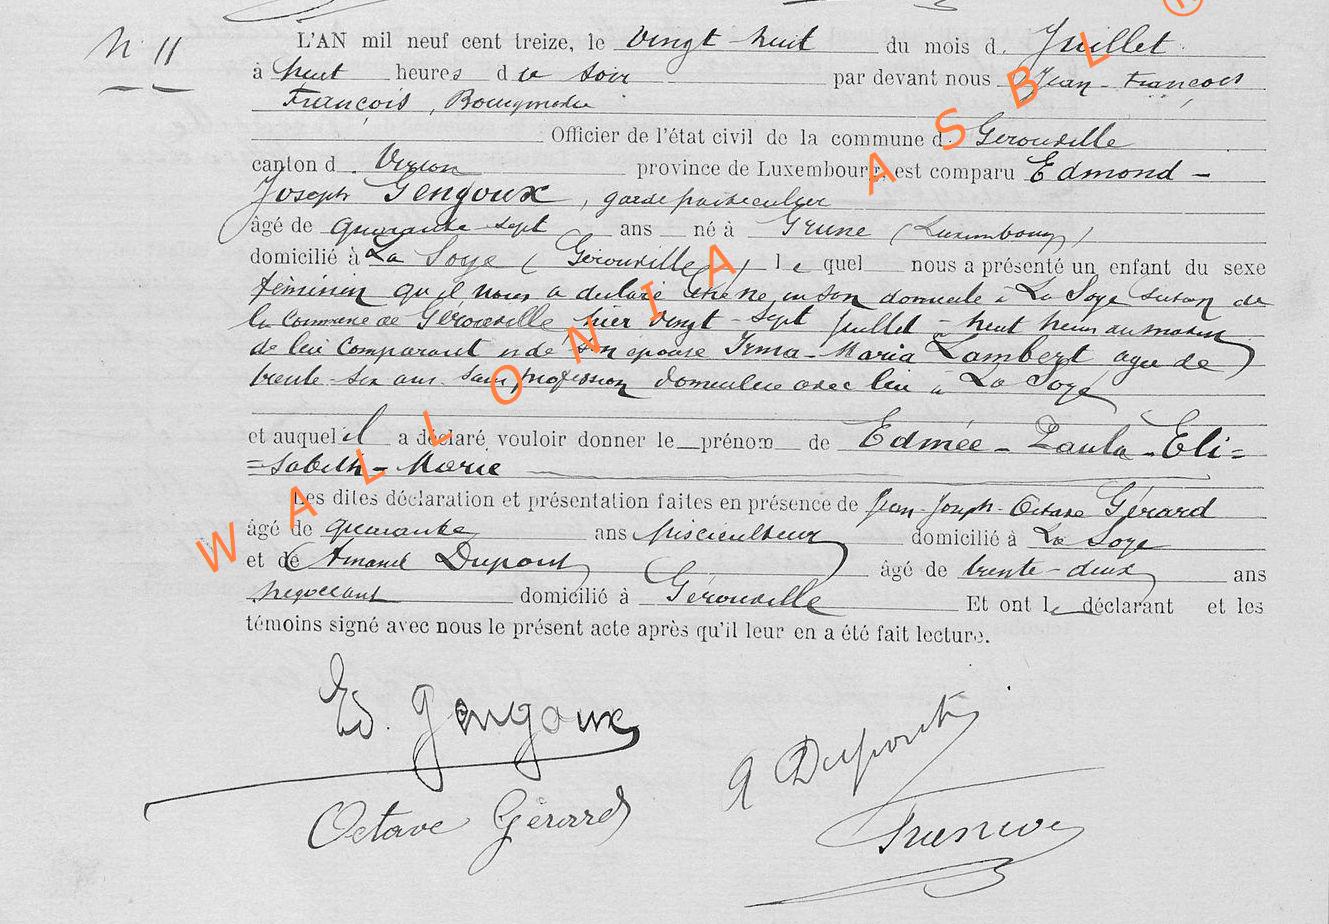 N. 11
L'AN mil neuf cent treize, le vingt-huit du mois d. Juillet.
à huit heures du soir par devant nous Jean-François
François, Bourgmestre
Officier de l'état civil de la commune d. Gérouville
canton d. Virton province de Luxembourg, est comparu Edmond-
Joseph Gengoux, garde particulier
âgé de quarante-sept ans né à Grune (Luxembourg)
domicilié à La Soye (Gérouville) lequel nous a présenté un enfant du sexe
féminin qu'il nous a déclaré être né, en son domicile à La Soye section de
la commune de Gérouville hier vingt-sept juillet à huit heures du matin
de lui comparant et de son épouse Irma-Maria Lambert agée de
trente-six ans sans profession domiciliée avec lui à La Soye
et auquel il a déclaré vouloir donner le prénom de Edmée-Paula-Eli=
=sabeth-Marie
Les dites déclaration et présentation faites en présence de Jean-Joseph-Octave Gérard
âgé de quarante ans pisciculteur domicilié à La Soye
et de Armand Dupont âgé de trente-deux ans
négociant domicilié à Gérouville Et ont le déclarant et les
témoins signé avec nous le présent acte après qu'il leur en a été fait lecture.
Ed. Gengoux
A Dupont
Octave Gérard
WALLONIA ASBL ®